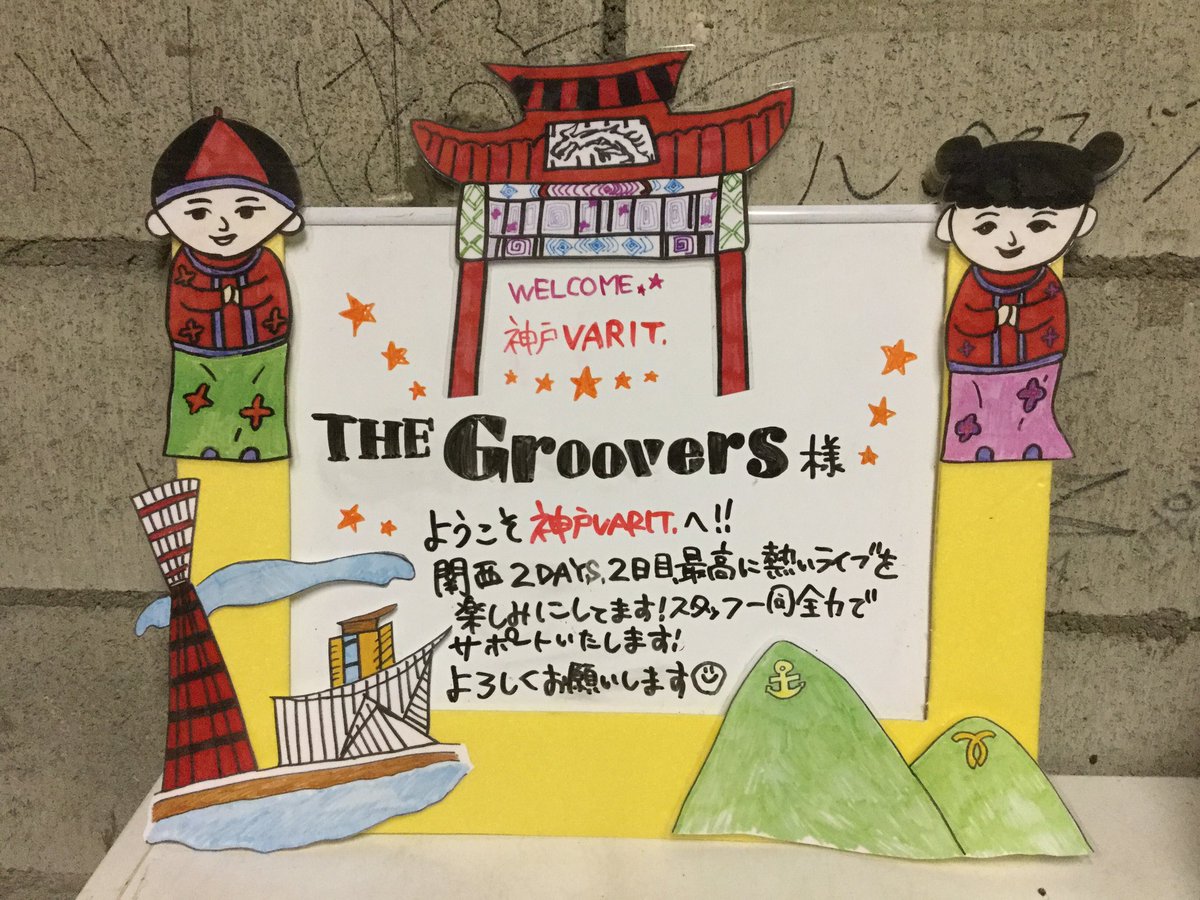 WELCOME
神戸VARIT.
THE Groovers様
ようこそ神戸VARIT.へ!!
関西2DAYS、2日目、最高に熱いライブを
楽しみにしてます!スタッフ一同全力で
サポートいたします!
よろしくお願いします